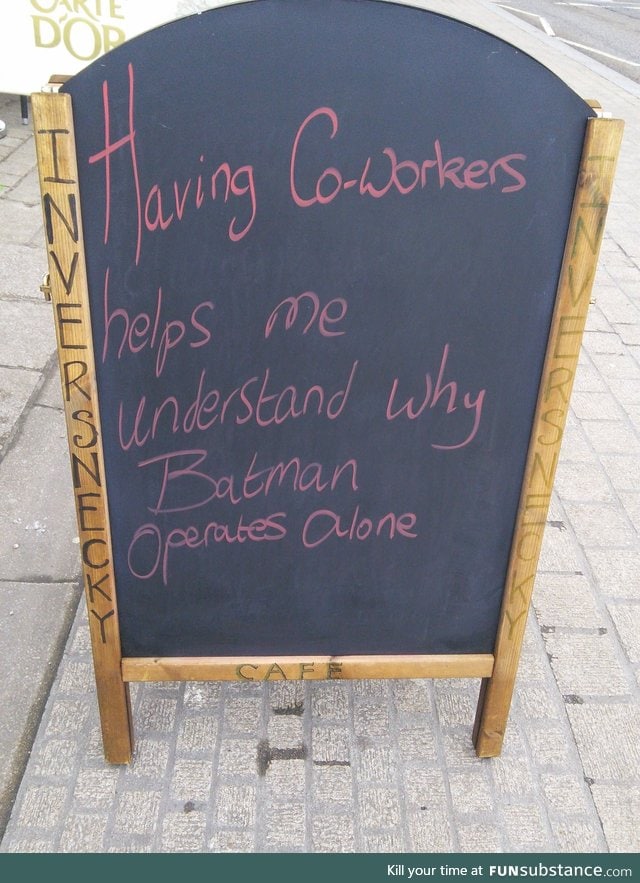 CARTE
D'OR
Having Co-workers
helps me
understand why
Batman
Operates alone
INVERSNECKY
INVERSNECKY
CAFE
Kill your time at FUNsubstance.com